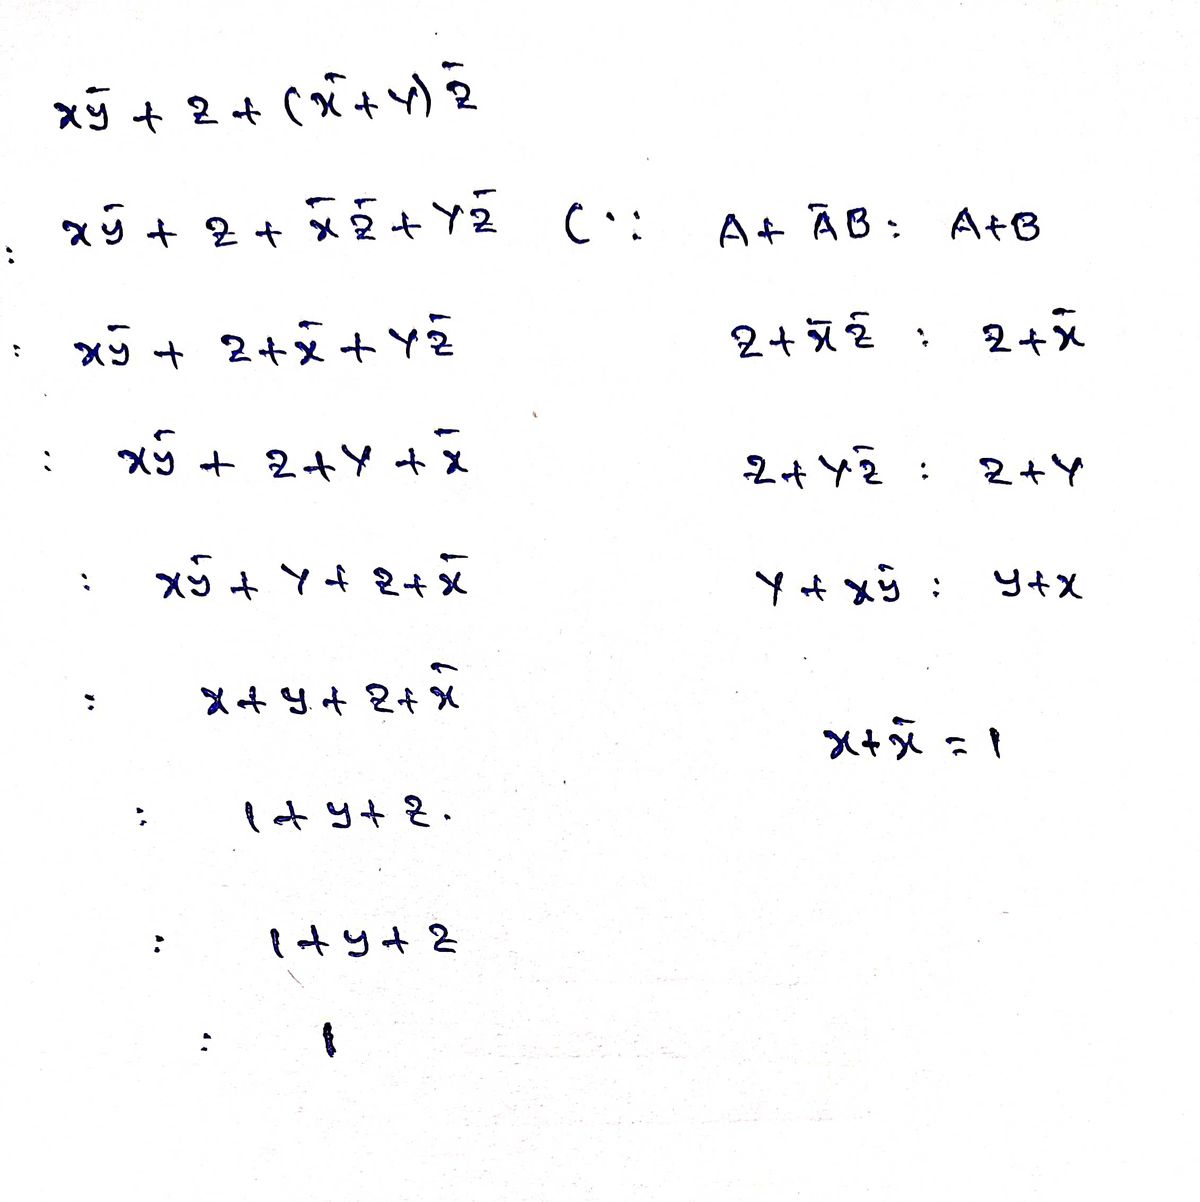 xȳ + z + (x̄ + y) z̄
: xȳ + z + x̄ z̄ + Y z̄ (∵ A + ĀB : A+B
: xȳ + z + x̄ + Y z̄ z + x̄ z̄ : z + x̄
: xȳ + z + Y + x̄ z + Y z̄ : z + Y
: xȳ + Y + z + x̄ Y + xȳ : y + x
: x + y + z + x̄
x + x̄ = 1
: 1 + y + z.
: 1 + y + z
: 1